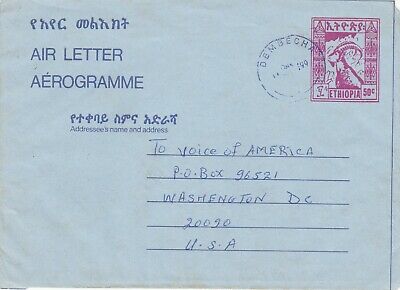 የአየር መልእክት
AIR LETTER
AÉROGRAMME
DEMBECHA
ኢትዮጵያ
ETHIOPIA 50c
የተቀባይ ስምና አድራሻ
Addressee's name and address
To Voice of AMERICA
P.O.Box 96521
WASHINGTON DC
20090
U.S.A